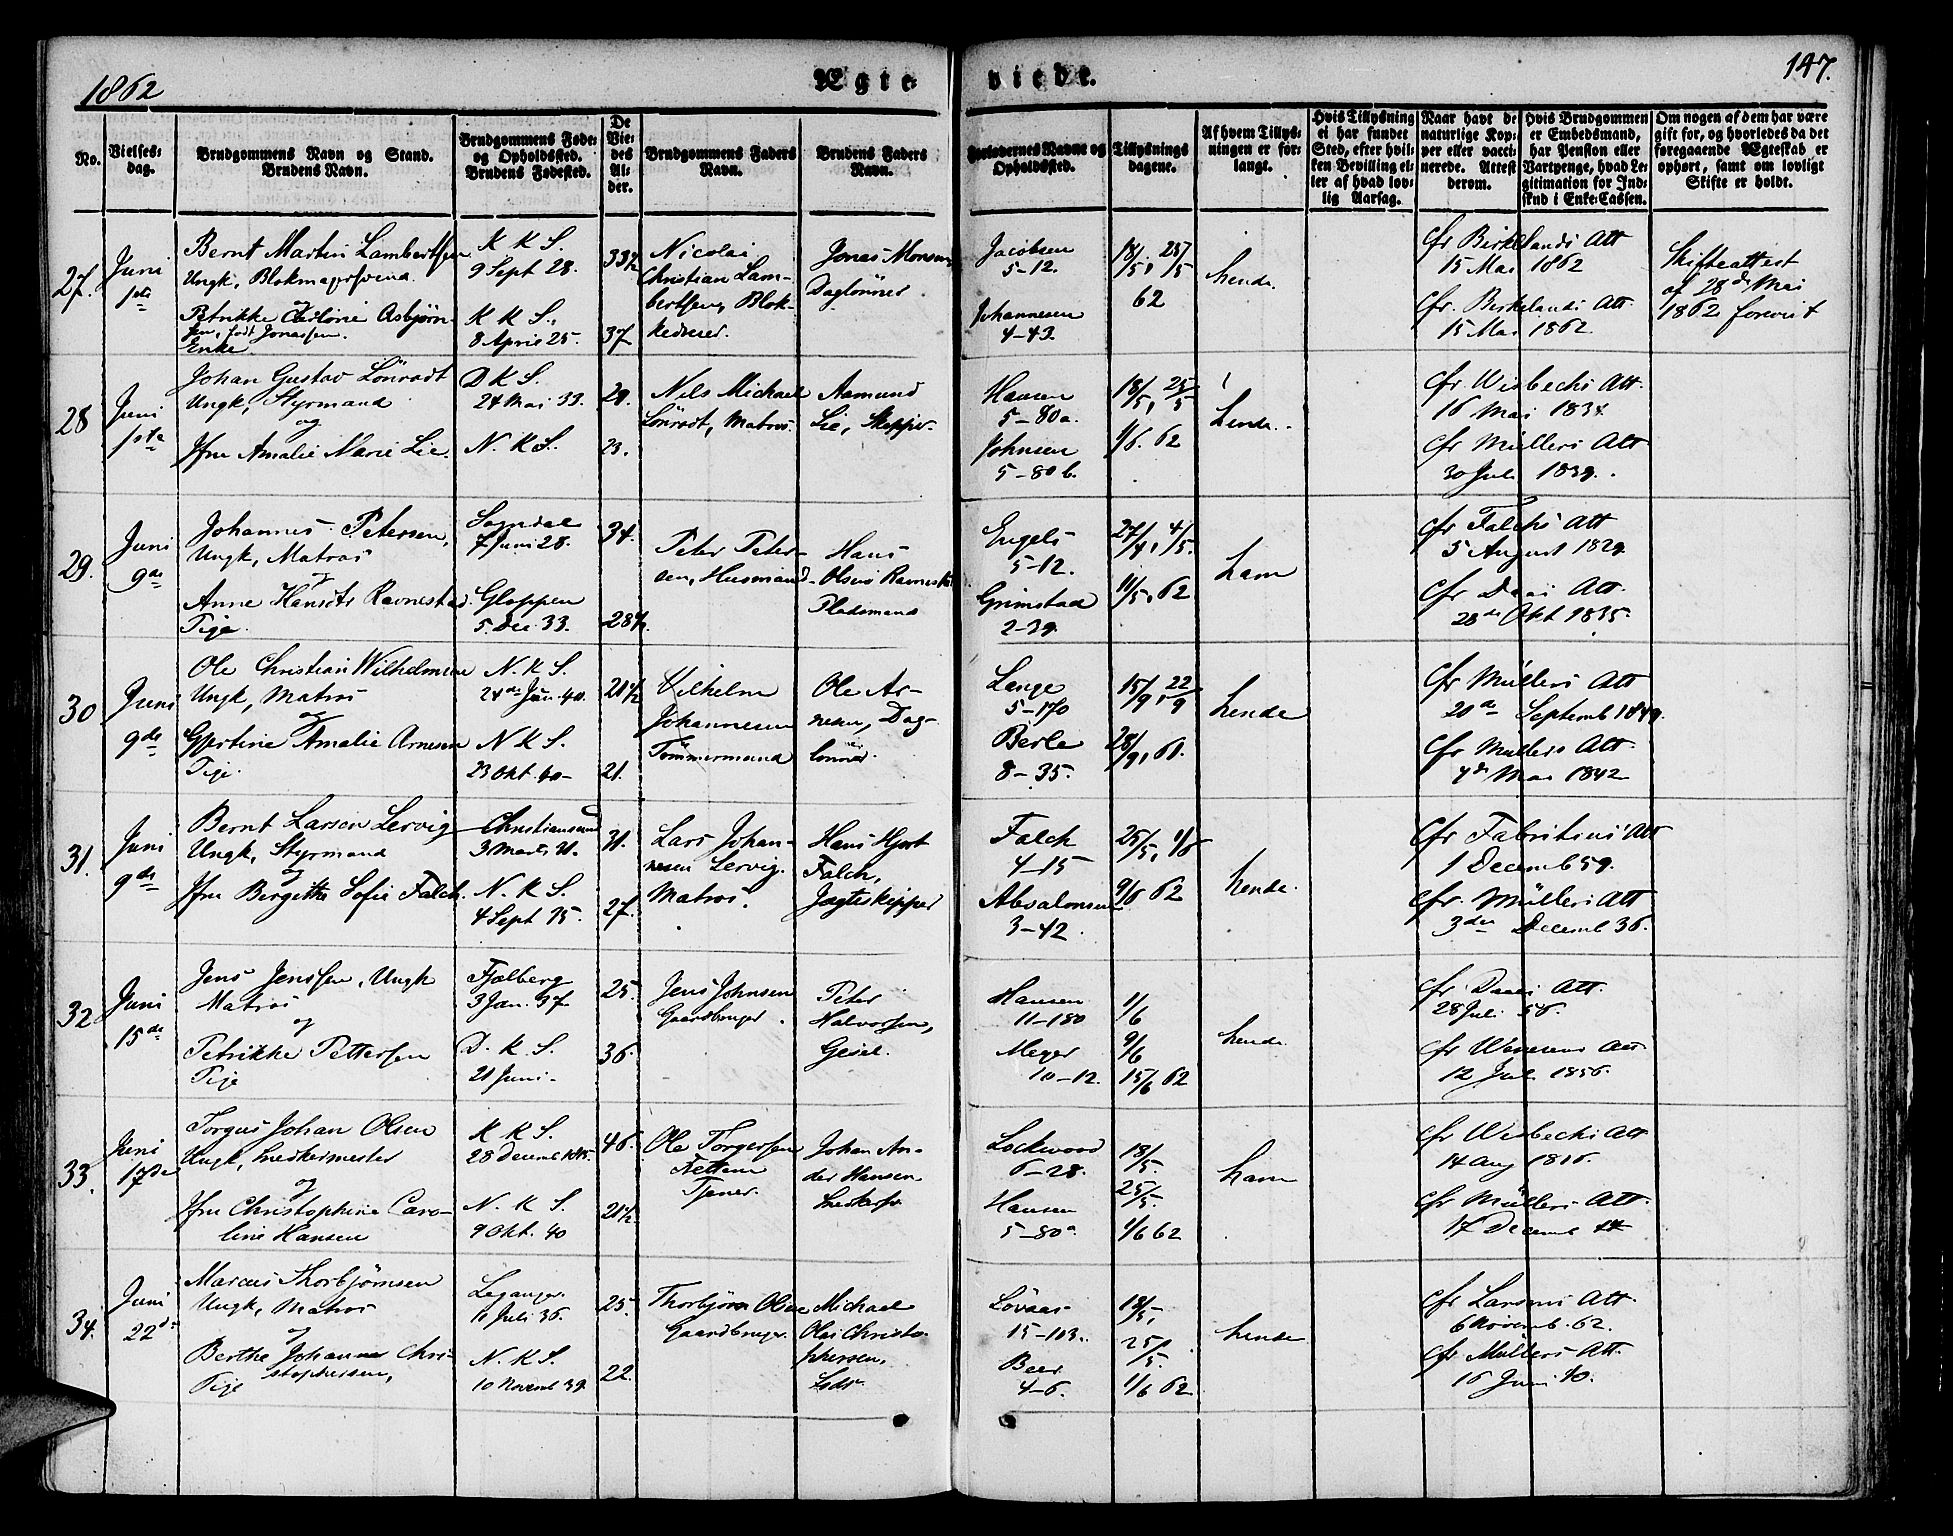 1862
Ægte
viede.
147.
No.
Vielses-
dag.
Brudgommens Navn og Stand.
Brudens Navn.
Brudgommens Føde-
og Opholdssted.
Brudens Fødested.
De
Vie-
des
Al-
der.
Brudgommens Faders
Navn.
Brudens Faders
Navn.
Forlovernes Navne og
Opholdssted.
Tillysnings
dagene.
Af hvem Tillys-
ningen er for-
langt.
Hvis Tillysning
ei har fundet
Sted, efter hvil-
ken Bevilling el-
ler af hvad lov-
lig Aarsag.
Naar havt de
naturlige Kop-
per eller vacci-
nerede. Attest
derom.
Hvis Brudgommen
er Embedsmand,
har Pension eller
Vartpenge, hvad Le-
gitimation for Ind-
skud i Enke-Cassen.
Om nogen af dem har være
gift for, og hvorledes da det
foregaaende Ægteskab er
ophørt, samt om lovligt
Skifte er holdt.
27.
Juni
1ste
Bernt Martin Lambertsen
Ungk, Blokmagersvend
og
Petrikke Asbjørn-
sen, født Jonassen.
Enke
K K S.
9 Sept 28.
K K S.
8 April 25.
33½
37
Nicolai
Christian Lam-
bertsen, Blok-
Jonas Monsen,
Daglønner
Jacobsen
5-12.
Johannesen
4-43.
18/5, 25/5
62
hende.
cfr Birkelands Att
15 Mai 1862
cfr. Birkelands Att.
15 Mai 1862.
Skifteattest
af 28de Mai
1862 forevist
28
Juni
1ste
Johan Gustav Lönrodt
Ungk, Styrmand
og
Jfru Amalie Marie Lie.
D K S.
24 Mai 33.
N. K S.
29.
23.
Nils Michael
Lönrodt, Matros.
Aamund
Lie, Skipper.
Hansen
5-80a.
Johnsen
5-80 b.
18/5, 25/5
1/6. 62
hende.
cfr Wisbechs Att.
16 Mai 1834.
cfr Müllers Att
30 Juli 1839.
29.
Juni
9de
Johannes Petersen,
Ungk, Matros
og
Anne Hansdtr Ravnestad
Pige.
Sogndal
7 Juni 28.
Gloppen
5. Dec. 33.
34.
28½.
Peter Peter-
sen, Husmand
Hans
Olsen Ravnestad
Pladsmand
Engels
5-12.
Grimstad
2-39.
27/4, 4/5.
11/5, 62
ham
cfr Falchs Att
5 August 1829.
cfr Daaes Att.
28de Okt 1835.
30
Juni
9de
Ole Christian Wilhelmsen
Ungk, Matros
og
Gjertine Amalie Arnesen
Pige.
N. K S.
24de Jan. 40.
N K S.
23 Okt. 40-
21½
21.
Vilhelm
Johannesen
Tömmermand
Ole Ar-
nesen, Dag-
lønner
Lange
5-170
Berle
8-35.
15/9, 22/9
28/9, 61.
hende
cfr Müllers Att
20de Septemb 1849.
cfr Müllers Att.
4de Mai 1842
31.
Juni
9de
Bernt Larsen Lervig
Ungk, Styrmand
og
Jfru Bergitte Sofie Falch.
Christiansund
3 Marts 31.
N. K S.
4 Sept 35.
31.
27.
Lars Johan-
nesen Lervig.
Matros.
Hans Hjort
Falch,
Jagteskipper
Falch
4-15
Absalonsen
3-42.
25/5, 1/6
9/6 62
hende.
cfr Fabritius' Att
1 Decemb 59.
cfr. Müllers Att
3den Decemb 36.
32
Juni
15de
Jens Jenssen, Ungk
Matros
og
Petrikke Pettersen
Pige
Fjelberg
3 Jan. 37
D. K. S.
21 Juni-
25.
36.
Jens Johnsen
Gaardbruger.
Peter
Halvorsen,
Gesel.
Hansen
11-180
Meyer
10-12.
1/6
9/6
15/6 62
hende
cfr Daaes Att.
28 Juli 56.
cfr Att
12 Juli 1856.
33.
Juni
17de
Torgus Johan Olsen
Ungk, Snedkermester
og
Jfru Christophine Caro-
line Hansen
K K S.
28 Decemb 1815.
N. K S.
9 Okt. 40
46.
21½.
Ole Torgersen
Tjener.
Johan An-
der Hansen
Lockwood
6-28.
Hansen
5-80a
18/5.
25/5.
1/6 62
ham
cfr Wisbechs Att
14 Aug 1816.
cfr Müllers Att.
17 Decemb 44
34.
Juni
22de
Marcus Thorbjørnsen
Ungk, Matros
og
Berthe Johanne Chri-
stophersen,
Pige
Leganger
10 Juli 36.
N. K S.
10 Novemb 39.
25.
22.
Thorbjørn Olsen
Gaardbruger.
Michael
Olai Christo-
phersen,
Lods.
Lövaas
15-103.
Beer
4-6.
18/5,
25/5.
1/6 62
hende
cfr Larsens Att.
6 Novemb. 62.
cfr Müllers Att.
16 Juni 40.